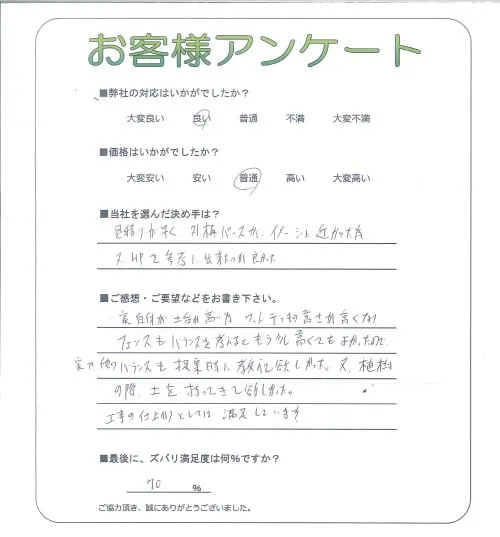 お客様アンケート
■弊社の対応はいかがでしたか？
大変良い 良い 普通 不満 大変不満
■価格はいかがでしたか？
大変安い 安い 普通 高い 大変高い
■当社を選んだ決め手は？
見積りが早く 外構パースが、イメージに近かった為
又、HPを参考に出来たのが良かった
■ご感想・ご要望などをお書き下さい。
・家自体が土台が高い為 ウッドデッキも高さが高くなり
フェンスもバランスを考えるともう少し高くてもよかったので、
他のバランスも提案時に教えて欲しかった。又、植樹
の際、土を持ってきて欲しかった。
工事の仕上がりとしては満足しています
■最後に、ズバリ満足度は何%ですか？
70 %
ご協力頂き、誠にありがとうございました。